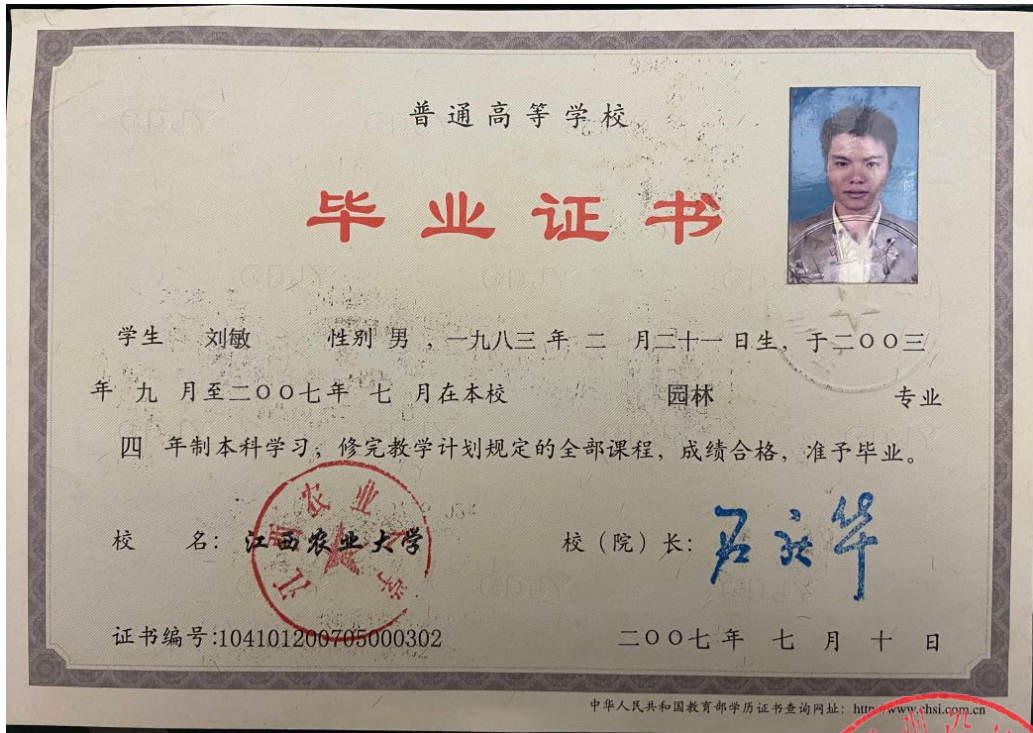 普通高等学校
毕业证书
学生 刘敏 性别 男 ，一九八三 年 二 月二十一 日生，于二〇〇三
年 九 月至二〇〇七年 七 月在本校 园林 专业
四 年制本科学习，修完教学计划规定的全部课程，成绩合格，准予毕业。
江西农业大学
校 名：江西农业大学 校（院）长：
证书编号:104101200705000302 二〇〇七年 七 月 十 日
中华人民共和国教育部学历证书查询网址：http://www.chsi.com.cn